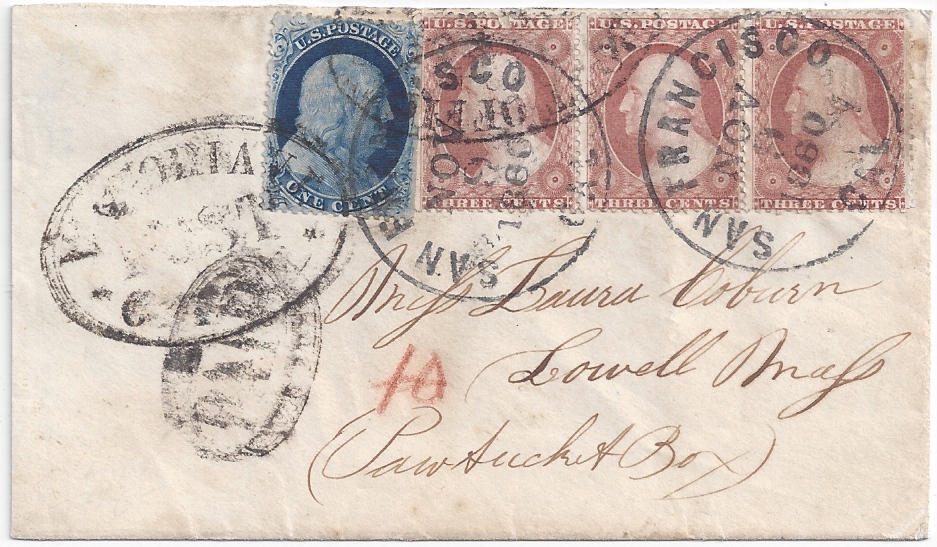 U.S. POSTAGE
ONE CENT
U.S. POSTAGE
THREE CENTS
U.S. POSTAGE
THREE CENTS
U.S. POSTAGE
THREE CENTS
SAN FRANCISCO
CAL
NOV
1860
SAN FRANCISCO
CAL
NOV
1860
VICTORIA V.I.
POST
OFFICE
PAID
10
Miss Laura Coburn
Lowell Mass
(Pawtucket Box)